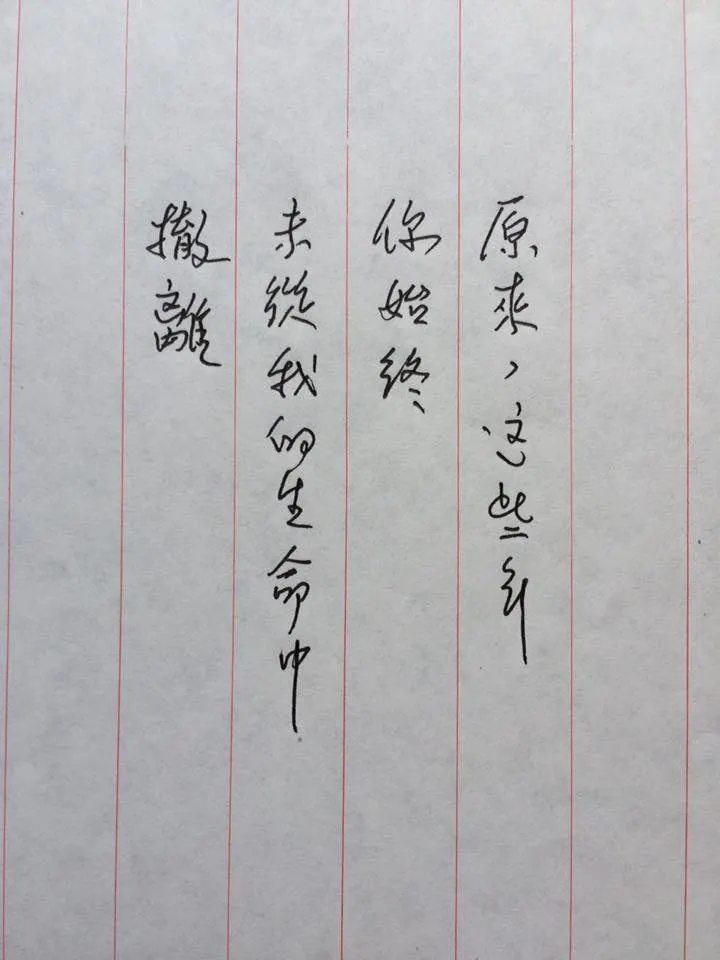 原來，这些年
你始终
未從我的生命中
撤離